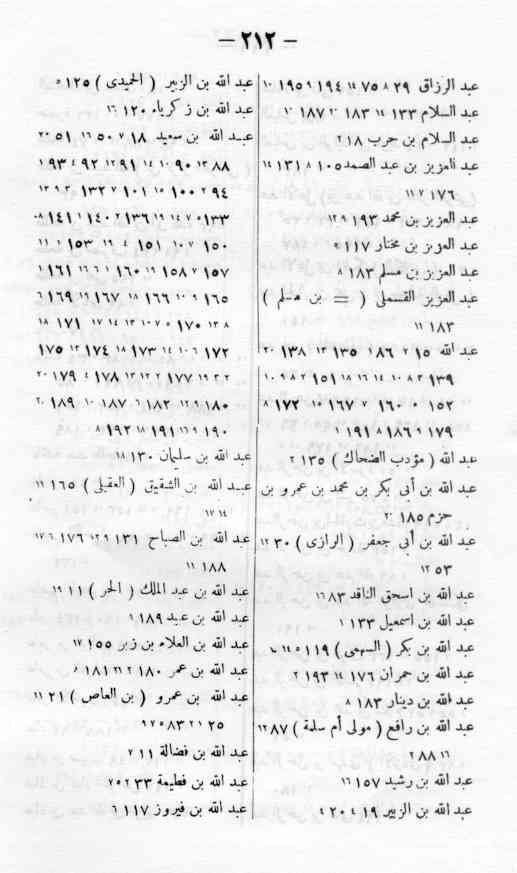 — ٢١٢ —
عبد الرزاق ٢٩ ٨ ٧٥ ١٤ ١٩٤ ٩ ١٩٥ ١٠
عبد السلام ١٣٣ ١٤ ١٨٣ ٢ ١٨٧ ١
عبد السلام بن حرب ١٨ ٢
عبد العزيز بن عبد الصمد ١٠٥ ٨ ١٣١ ١٤
١٧٦ ٢ ١١
عبد العزيز بن محمد ١٩٣ ٩ ١٢
عبد العزيز بن مختار ١١٧ ٥
عبد العزيز بن مسلم ١٨٣ ٨
عبد العزيز القسملي ( = بن مسلم )
١٨٣ ١١
عبد الله ١٥ ٢ ٨٦ ١ ١٣٥ ١٣ ١٣٨ ٢٠
١٣٩ ٣ ٨ ١٠ ١٤ ١٦ ١٨ ١٥١ ٢ ٨ ٩ ١٠
١٥٢ ٥ ١٦٠ ٧ ١٦٧ ١٠ ١٧٢ ٨
١٧٩ ٧ ١٨٦ ٨ ١٩١ ٨
عبد الله ( مؤدب الضحاك ) ١٣٥ ٢
عبد الله بن أبي بكر بن محمد بن عمرو بن
حزم ١٨٥
عبد الله بن أبي جعفر ( الرازى ) ٣٠ ١٢
٥٣ ١٢
عبد الله بن اسحق الناقد ٨٣ ١٦
عبد الله بن اسمعيل ١٣٣ ١
عبد الله بن بكر ( السهمى ) ١١٩
عبد الله بن حمران ١٧٦ ١١ ١٩٣ ٢
عبد الله بن دينار ١٨٣ ٨
عبد الله بن رافع ( مولى أم سلمة ) ٨٧ ١٢
٨٨ ٢ ١٦
عبد الله بن رشيد ١٥٧ ١٦
عبد الله بن الزبير ١٩ ٤ ٢٠ ٤
عبد الله بن الزبير ( الحميدى ) ١٢٥ ٥
عبد الله بن زكرياء ١٢٠ ١٦
عبد الله بن سعيد ١٨ ٧ ٥٠ ١٦ ٥١ ٢٠
٨٨ ١٣ ٩٠ ١٠ ١٤ ٩١ ١٢ ٩٢ ٤ ٩٣ ١
٩٤ ٢ ١٠٠ ١٥ ١٠١ ٧ ١٣٢ ٢ ٣ ٩ ١٢
١٣٣ ٥ ٧ ١٤ ١٩ ١٣٦ ٢ ١٤٠ ١ ١٤١ ٨
١٥٠ ٧ ١٠ ١٥١ ٤ ١٩ ١٥٣ ١ ١١
١٥٧ ٧ ١٥٨ ١٢ ١٦٠ ١ ٦ ١٦١ ١
١٦٥ ٩ ١٠ ١٦٦ ١٨ ١٦٧ ١٢ ١٦٩ ٦
٨ ١٣ ١٧٠ ٥ ٧ ١٠ ١٣ ١٤ ١٧ ١٧١ ١٨
١٧٢ ٤ ٦ ١٠ ١٧٣ ١٨ ١٧٤ ١٣ ١٧٥
٢ ٣ ١٩ ١٧٧ ٢ ١٢ ١٣ ١٧٨ ٤ ١٧٩ ٢٠
١٨٠ ٩ ١٢ ١٨٢ ٦ ١٨٧ ١٠ ١٨٩ ٢٠
١٩٠ ٩ ١٩١ ١٨ ١٩٢ ٨
عبد الله بن سليمان ١٣٠ ١٨
عبد الله بن الشقيق ( العقيلى ) ١٦٥ ١١
١٤ ١٧
عبد الله بن الصباح ١٣١ ٩ ١٢ ١٧٦ ٦ ١٧
١٨٨ ١١
عبد الله بن عبد الملك ( الحر ) ١١ ١٦
عبد الله بن عبيد ١٨٩ ٩
عبد الله بن العلاء بن زبر ١٥٥ ١٧
عبد الله بن عمر ١٨٠ ٢ ٢١ ١٨١ ٨
عبد الله بن عمرو ( بن العاص ) ٢١ ١١
٢٥ ١ ٢ ٨٣ ٥ ٧ ٩
عبد الله بن فضالة ١١ ٢
عبد الله بن فطيمة ٢٣ ٢ ٣
عبد الله بن فيروز ١١٧ ٦